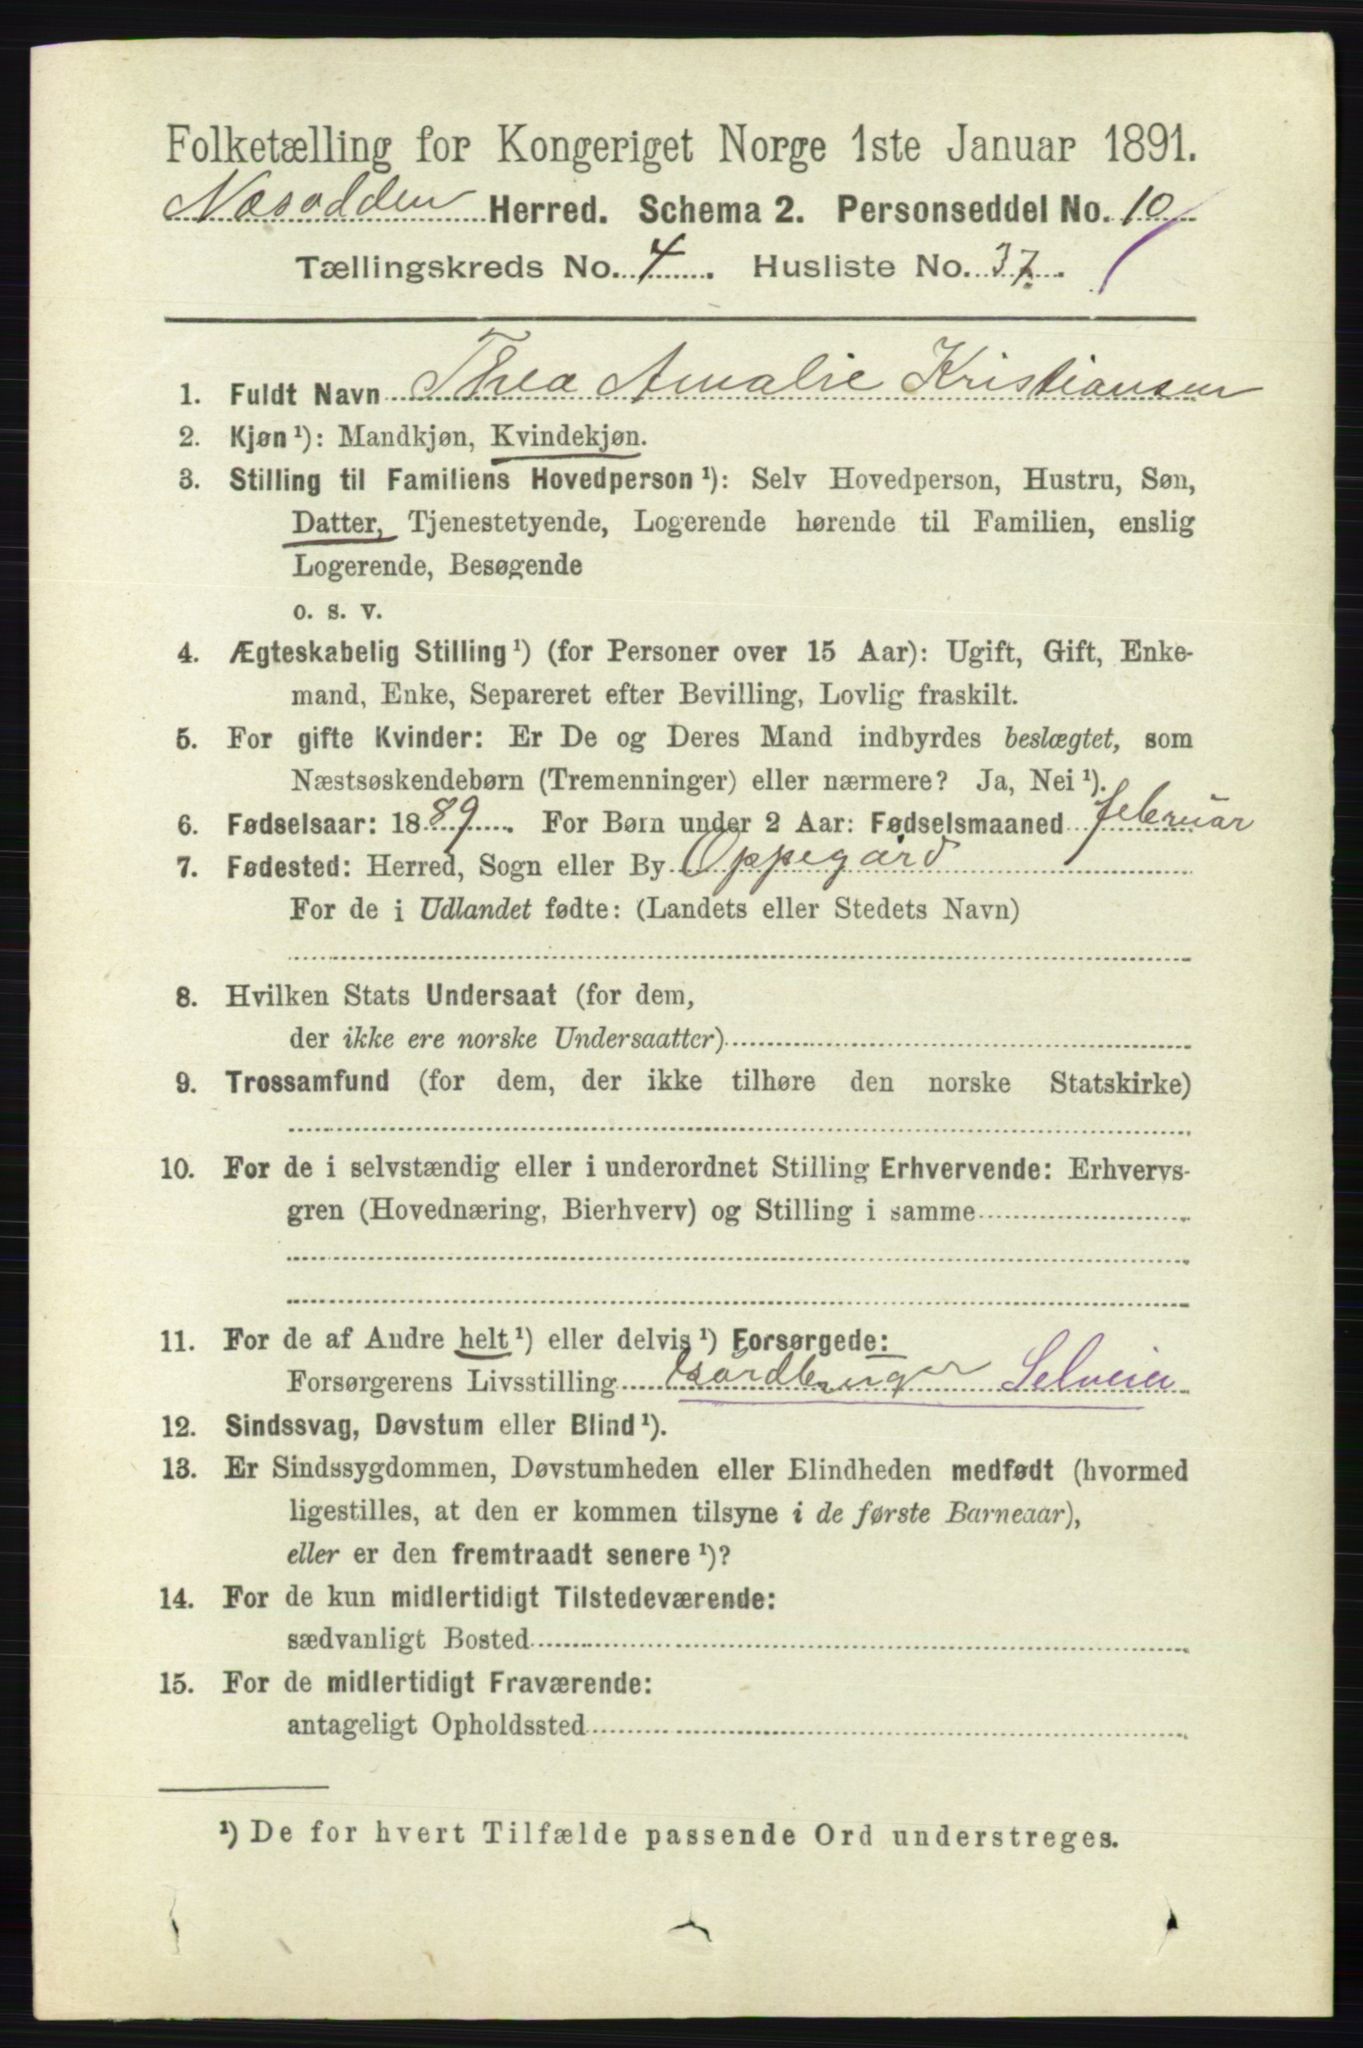 Folketælling for Kongeriget Norge 1ste Januar 1891.
Nesodden Herred. Schema 2. Personseddel No. 10
Tællingskreds No. 4. Husliste No. 37.
1. Fuldt Navn Thea Amalie Kristiansen
2. Kjøn ¹): Mandkjøn, Kvindekjøn.
3. Stilling til Familiens Hovedperson ¹): Selv Hovedperson, Hustru, Søn,
Datter, Tjenestetyende, Logerende hørende til Familien, enslig
Logerende, Besøgende
o. s. v.
4. Ægteskabelig Stilling ¹) (for Personer over 15 Aar): Ugift, Gift, Enke-
mand, Enke, Separeret efter Bevilling, Lovlig fraskilt.
5. For gifte Kvinder: Er De og Deres Mand indbyrdes beslægtet, som
Næstsøskendebørn (Tremenninger) eller nærmere? Ja, Nei ¹).
6. Fødselsaar: 1889. For Børn under 2 Aar: Fødselsmaaned februar
7. Fødested: Herred, Sogn eller By Oppegård
For de i Udlandet fødte: (Landets eller Stedets Navn)
8. Hvilken Stats Undersaat (for dem,
der ikke ere norske Undersaatter)
9. Trossamfund (for dem, der ikke tilhøre den norske Statskirke)
10. For de i selvstændig eller i underordnet Stilling Erhvervende: Erhvervs-
gren (Hovednæring, Bierhverv) og Stilling i samme
11. For de af Andre helt ¹) eller delvis ¹) Forsørgede:
Forsørgerens Livsstilling Gårdbruger Selveier
12. Sindssvag, Døvstum eller Blind ¹).
13. Er Sindssygdommen, Døvstumheden eller Blindheden medfødt (hvormed
ligestilles, at den er kommen tilsyne i de første Barneaar),
eller er den fremtraadt senere ¹)?
14. For de kun midlertidigt Tilstedeværende:
sædvanligt Bosted
15. For de midlertidigt Fraværende:
antageligt Opholdssted
¹) De for hvert Tilfælde passende Ord understreges.